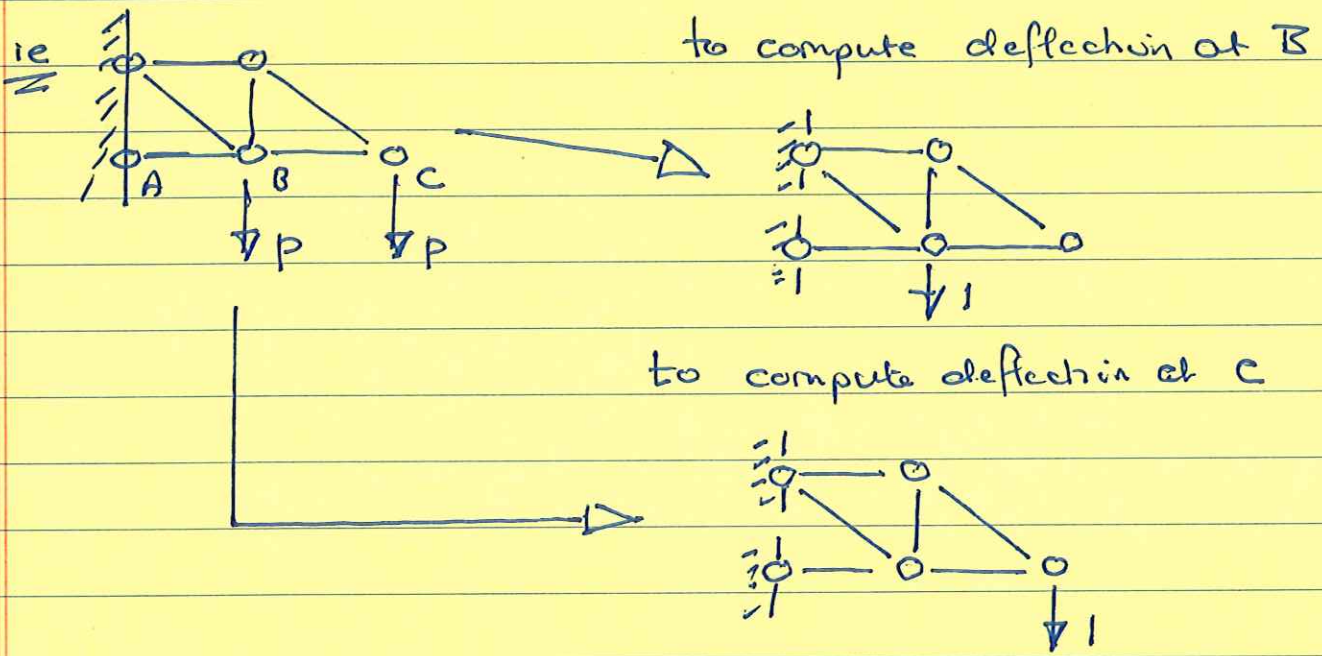 ie
to compute deflection at B
A B C
P P
1
to compute deflection at C
1